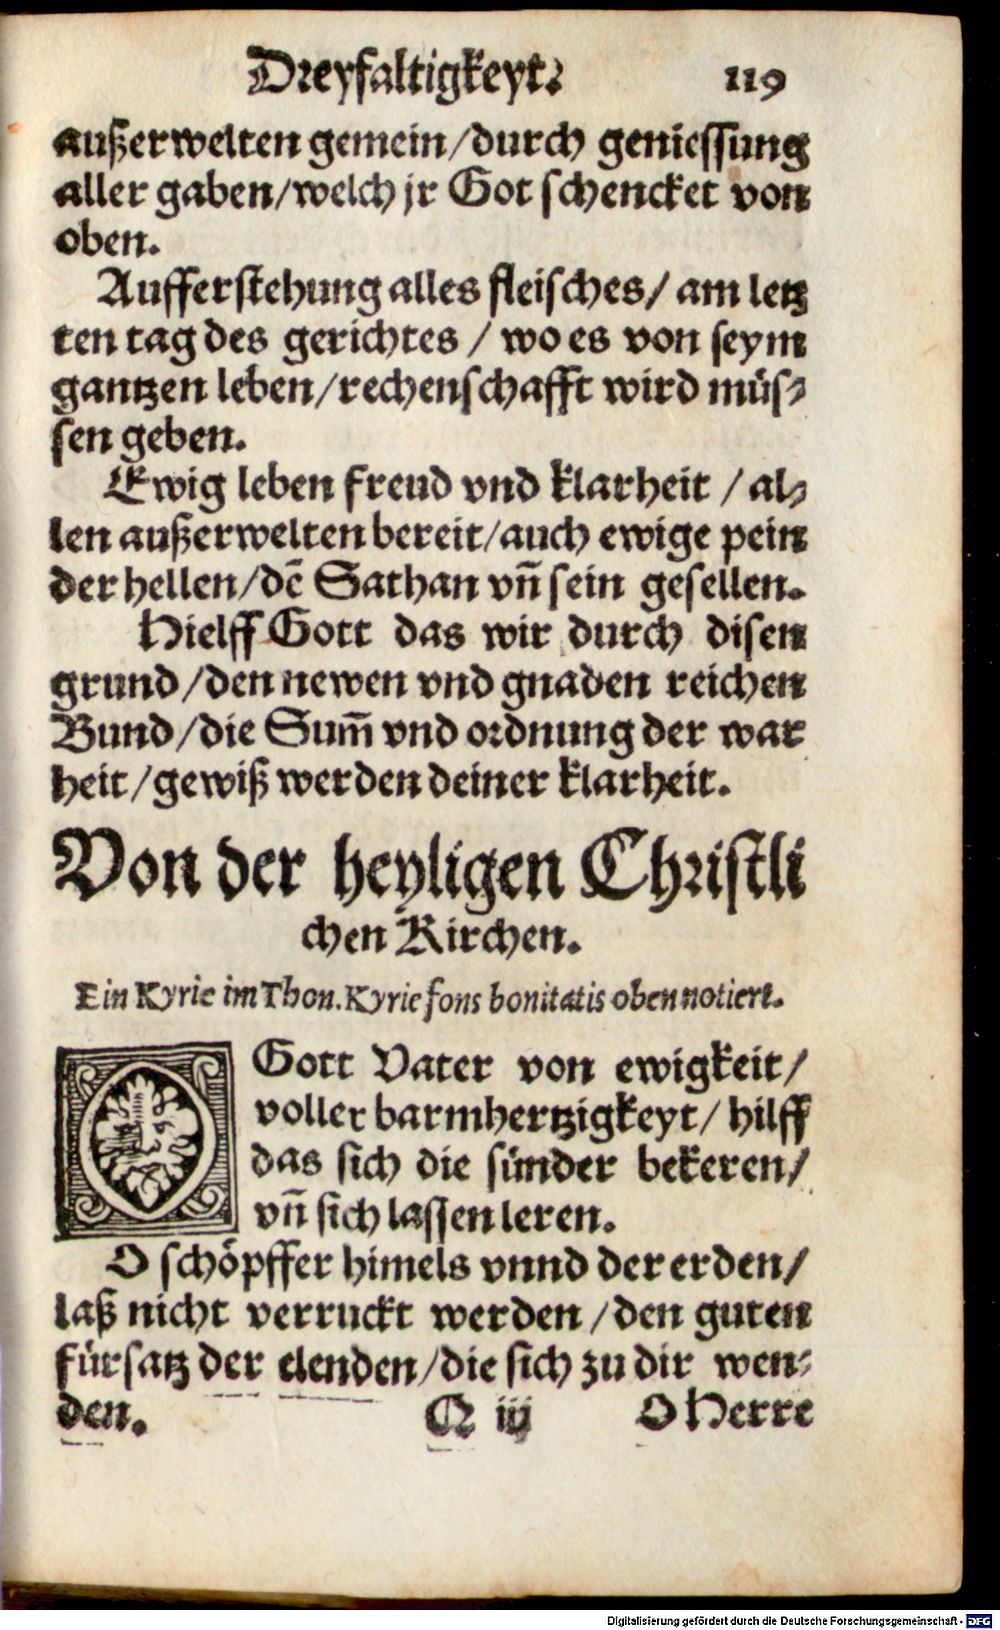 Dreyfaltigkeyt. 119
außerwelten gemein/durch geniessung
aller gaben/welch jr Got schencket von
oben.
Aufferstehung alles fleisches/ am letz
ten tag des gerichtes / wo es von seym
gantzen leben/rechenschafft wird müs⸗
sen geben.
Ewig leben freud vnd klarheit / al⸗
len außerwelten bereit/auch ewige pein
der hellen/dē Sathan vñ sein gesellen.
Hielff Gott das wir durch disen
grund/den newen vnd gnaden reichen
Bund/die Sum̄ vnd ordnung der war
heit/gewiß werden deiner klarheit.
Von der heyligen Christli
chen Kirchen.
Ein Kyrie im Thon. Kyrie fons bonitatis oben notiert.
Gott Vater von ewigkeit/
voller barmhertzigkeyt/ hilff
das sich die sünder bekeren/
vñ sich lassen leren.
O schöpffer himels vnnd der erden/
laß nicht verruckt werden/den guten
fürsatz der elenden/die sich zu dir wen⸗
den. Q iij O Herre
Digitalisierung gefördert durch die Deutsche Forschungsgemeinschaft - DFG